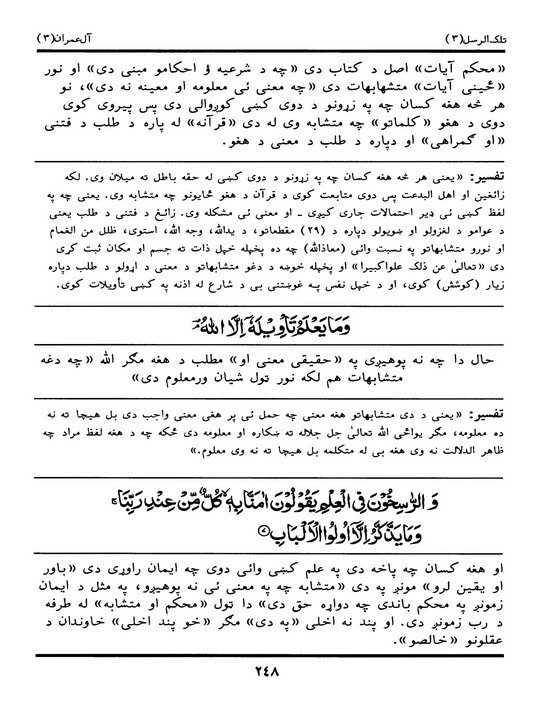 تلک الرسل(۳) آل عمران(۳)
«محکم آیات» اصل د کتاب دی «چه د شرعیه ؤ احکامو مبنی دی» او نور
«ځینی آیات» متشابهات دی «چه معنی ئی معلومه او معینه نه دی»، نو
هر څه هغه کسان چه په زړونو د دوی کښی کوږوالی دی پس پیروی کوی
دوی د هغو «کلماتو» چه متشابه وی له دی «قرآنه» له پاره د طلب د فتنی
«او گمراهی» او دپاره د طلب د معنی د هغو.
تفسیر: «یعنی هر څه هغه کسان چه په زړونو د دوی کښی له حقه باطل ته میلان وی. لکه
زائغین او اهل البدعت پس دوی متابعت کوی د قرآن د هغو ځایونو چه متشابه وی. یعنی چه په
لفظ کښی ئی ډیر احتمالات جاری کیږی ـ او معنی ئی مشکله وی. زائغ د فتنی د طلب یعنی
د عوامو د لغزولو او ښویولو دپاره د (۲۹) مقطعاتو، د یدالله، وجه الله، استوی، ظلل من الغمام
او نورو متشابهاتو په نسبت وائی (معاذالله) چه ده پخپله خپل ذات ته جسم او مکان ثبت کړی
دی «تعالیٰ عن ذلک علواکبیرا» او پخپله خوښه د دغو متشابهاتو د معنی د اړولو د طلب دپاره
زیار (کوشش) کوی، او د خپل نفس په غوښتنی بی د شارع له اذنه په کښی تأویلات کوی.
وَمَا يَعْلَمُ تَأْوِيلَهٗٓ اِلَّا اللهُ ۘ
حال دا چه نه پوهیږی په «حقیقی معنی او» مطلب د هغه مگر الله «چه دغه
متشابهات هم لکه نور ټول شیان ورمعلوم دی»
تفسیر: «یعنی د دی متشابهاتو هغه معنی چه حمل ئی پر هغی معنی واجب دی بل هیچا ته نه
ده معلومه، مگر یواځی الله تعالیٰ جل جلاله ته ښکاره او معلومه دی ځکه چه د هغه لفظ مراد چه
ظاهر الدلالت نه وی هغه بی له متکلمه بل هیچا ته نه وی معلوم.»
وَ الرّٰسِخُوْنَ فِی الْعِلْمِ يَقُوْلُوْنَ اٰمَنَّا بِهٖ كُلٌّ مِّنْ عِنْدِ رَبِّنَا ۚ
وَمَا يَذَّكَّرُ اِلَّآ اُولُوا الْاَلْبَابِ ۝۷
او هغه کسان چه پاخه دی په علم کښی وائی دوی چه ایمان راوړی دی «باور
او یقین لرو» مونږ په دی «متشابه چه په معنی ئی نه پوهیږو، په مثل د ایمان
زمونږ په محکم باندی چه دواړه حق دی» دا ټول «محکم او متشابه» له طرفه
د رب زمونږ دی. او پند نه اخلی «په دی» مگر «خو پند اخلی» خاوندان د
عقلونو «خالصو».
۲٤۸